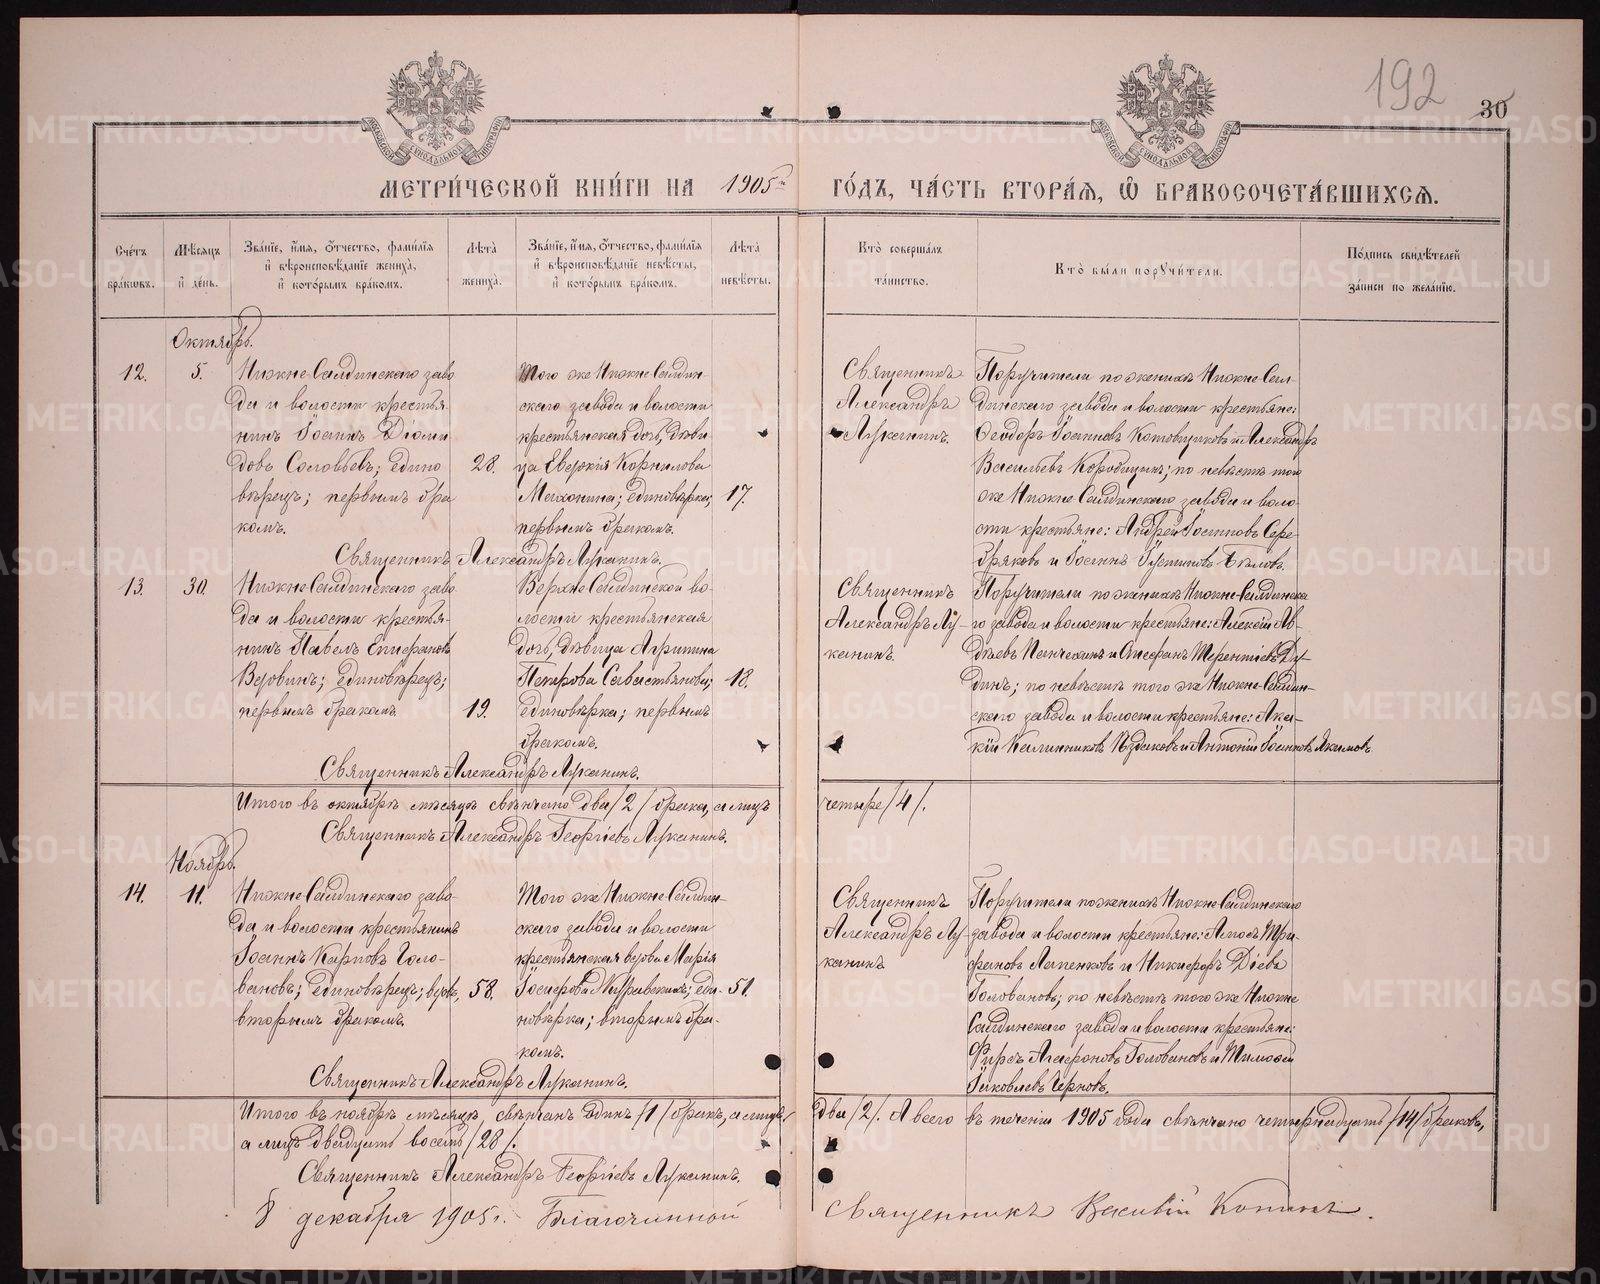 192
30
МЕТРИ́ЧЕСКОЙ КНИ́ГИ НА 1905 ГО́ДЪ, ЧА́СТЬ ВТОРА́Ѧ, Ѽ БРАКОСОЧЕТА́ВШИХСѦ.
Счéтъ бра́кѡвъ.
Мѣ́сѧцъ и де́нь.
Зва́нїе, и́мѧ, ѻ́тчество, фами́лїѧ
и вѣроисповѣ́данїе жениха̀,
и кото́рымъ бра́комъ.
Лѣ́та жениха̀.
Зва́нїе, и́мѧ, ѻ́тчество, фами́лїѧ
и вѣроисповѣ́данїе невѣ́сты,
и кото́рымъ бра́комъ.
Лѣ́та невѣ́сты.
Кто̀ соверша́лъ та́инство.
Кто̀ бы́ли порꙋчи́тели.
По́дпись свидѣ́телей
за́писи по жела́нїю.
Октябрь.
12.
5.
Нижне-Салдинскаго заво
да и волости крестья-
нинъ Іоаннъ Діоми
довъ Соловьевъ; едино
вѣрецъ; первымъ бра
комъ.
28.
Того же Нижне-Салдин-
скаго завода и волости
крестьянская дочь, дѣви
ца Евдокія Корнилова
Маханина; единовѣрка;
первымъ бракомъ.
17.
Священникъ
Александръ
Луканинъ.
Поручители по женихѣ Нижне-Сал-
динскаго завода и волости крестьяне:
Ѳеодоръ Іоанновъ Котовщиковъ и Александръ
Васильевъ Коробицынъ; по невѣстѣ того
же Нижне-Салдинскаго завода и воло-
сти крестьяне: Андрей Іоанновъ Сере-
бряковъ и Іоаннъ Іустиновъ Бѣловъ.
Священникъ Александръ Луканинъ.
13.
30.
Нижне-Салдинскаго заво
да и волости крестья-
нинъ Павелъ Епифановъ
Вдовинъ; единовѣрецъ;
первымъ бракомъ.
19.
Верхне-Салдинской во-
лости крестьянская
дочь, дѣвица Агрипина
Петрова Савастьянова;
единовѣрка; первымъ
бракомъ.
18.
Священникъ
Александръ Лу-
канинъ.
Поручители по женихѣ Нижне-Салдинска
го завода и волости крестьяне: Алексій Ав-
дѣевъ Панчехинъ и Стефанъ Терентіевъ Ду-
динъ; по невѣстѣ того же Нижне-Салдин-
скаго завода и волости крестьяне: Ака-
кій Калинниковъ и Антоній Іоанновъ Акимовъ
Священникъ Александръ Луканинъ.
Итого въ октябрѣ мѣсяцѣ свѣнчано два /2/ брака, а лицъ четыре /4/.
Священникъ Александръ Георгіевъ Луканинъ.
Ноябрь.
14.
11.
Нижне-Салдинскаго заво-
да и волости крестьянинъ
Іоаннъ Карповъ Голо-
вановъ; единовѣрецъ; вдовъ,
вторымъ бракомъ.
58.
Того же Нижне-Салдин-
скаго завода и волости
крестьянская вдова Марія
Іосифова; еди-
новѣрка; вторымъ бра-
комъ.
51.
Священникъ
Александръ Лу-
канинъ
Поручители по женихѣ Нижне-Салдинскаго
завода и волости крестьяне: Амосъ Три-
фановъ Лапенковъ и Никифоръ Діевъ
Головановъ; по невѣстѣ того же Нижне
Салдинскаго завода и волости крестьяне:
Фирсъ Агафоновъ Головановъ и Тимоѳей
Іаковлевъ Черновъ.
Священникъ Александръ Луканинъ.
Итого въ ноябрѣ мѣсяцѣ, свѣнчанъ одинъ /1/ бракъ, а лицъ два /2/. А всего въ теченіи 1905 года свѣнчано четырнадцать /14/ браковъ,
а лицъ двадцать восемь /28/.
Священникъ Александръ Георгіевъ Луканинъ.
8 декабря 1905 г. Благочинной священникъ Василій
METRIKI.GASO-URAL.RU